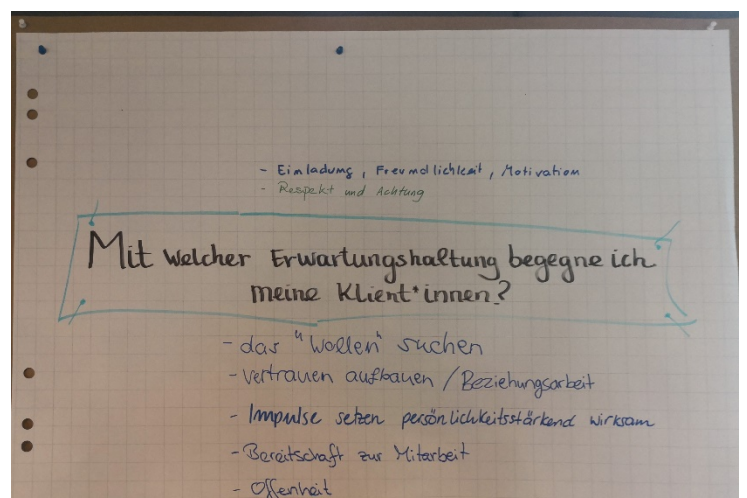 - Einladung, Freundlichkeit, Motivation
- Respekt und Achtung
Mit welcher Erwartungshaltung begegne ich
meine Klient*innen?
- das "Wollen" suchen
- Vertrauen aufbauen / Beziehungsarbeit
- Impulse setzen persönlichkeitsstärkend wirksam
- Bereitschaft zur Mitarbeit
- Offenheit